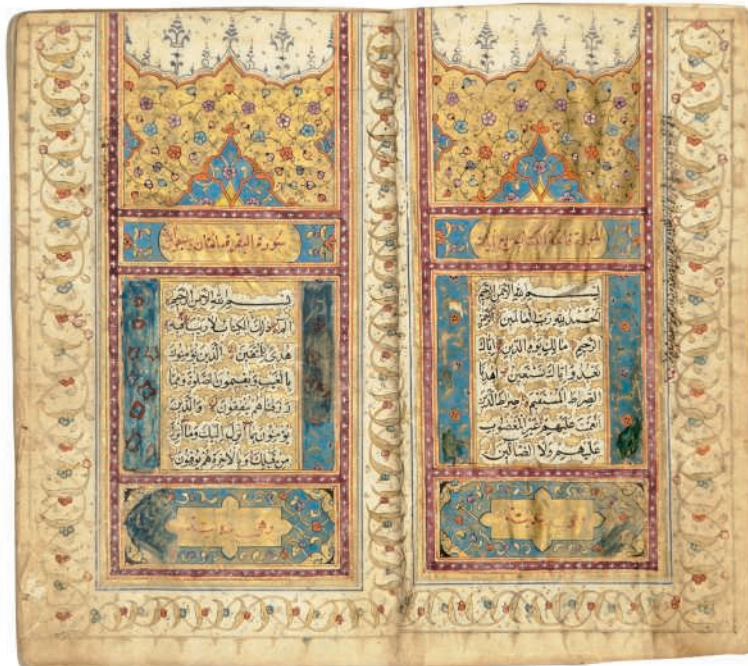 سورة فاتحة الكتاب
بِسْمِ اللهِ الرَّحْمٰنِ الرَّحِيمِ
اَلْحَمْدُ لِلّٰهِ رَبِّ الْعَالَمِينَ الرَّحْمٰنِ
الرَّحِيمِ مَالِكِ يَوْمِ الدِّينِ اِيَّاكَ
نَعْبُدُ وَاِيَّاكَ نَسْتَعِينُ اِهْدِنَا
الصِّرَاطَ الْمُسْتَقِيمَ صِرَاطَ الَّذِينَ
اَنْعَمْتَ عَلَيْهِمْ غَيْرِ الْمَغْضُوبِ
عَلَيْهِمْ وَلَا الضَّالِّينَ
سورة البقرة مائتان
بِسْمِ اللهِ الرَّحْمٰنِ الرَّحِيمِ
الم ذٰلِكَ الْكِتَابُ لَا رَيْبَ فِيهِ
هُدًى لِلْمُتَّقِينَ الَّذِينَ يُؤْمِنُونَ
بِالْغَيْبِ وَيُقِيمُونَ الصَّلٰوةَ وَمِمَّا
رَزَقْنَاهُمْ يُنْفِقُونَ وَالَّذِينَ
يُؤْمِنُونَ بِمَا اُنْزِلَ اِلَيْكَ وَمَا اُنْزِلَ
مِنْ قَبْلِكَ وَبِالْاٰخِرَةِ هُمْ يُوقِنُونَ